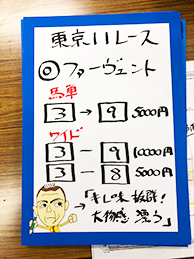 東京11レース
◎ファーヴェント
馬単
3→9 5000円
ワイド
3-9 10000円
3-8 5000円
「キレ味抜群!
大物感漂う」